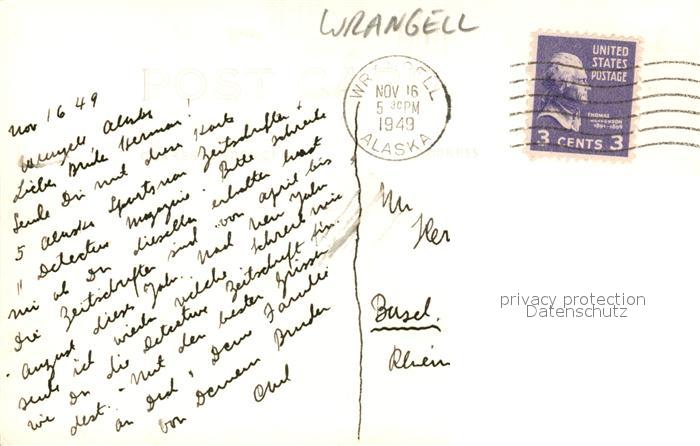 WRANGELL
POST CARD
WRANGELL
NOV 16
5 30 PM
1949
ALASKA
UNITED
STATES
POSTAGE
THOMAS
JEFFERSON
1801-1809
3 CENTS 3
Nov 16 49
Wrangell Alaska
Lieber Bruder Herman!
Sende Dir mit dieser Karte
5 Alaska Sportsman Zeitschriften &
11 Detective Magazine. Bitte schreibe
mir ob Du dieselben erhalten hast
Die Zeitschriften sind von April bis
August dieses Jahr. Nach neu Jahr
sende ich wieder welche. Schreib mir
wie Du die Detective Zeitschrift fin-
dest. - Mit den besten Grüssen
an Dich & Deine Familie
von Deinem Bruder
Mr
Her
Basel.
Rhein
privacy protection
Datenschutz